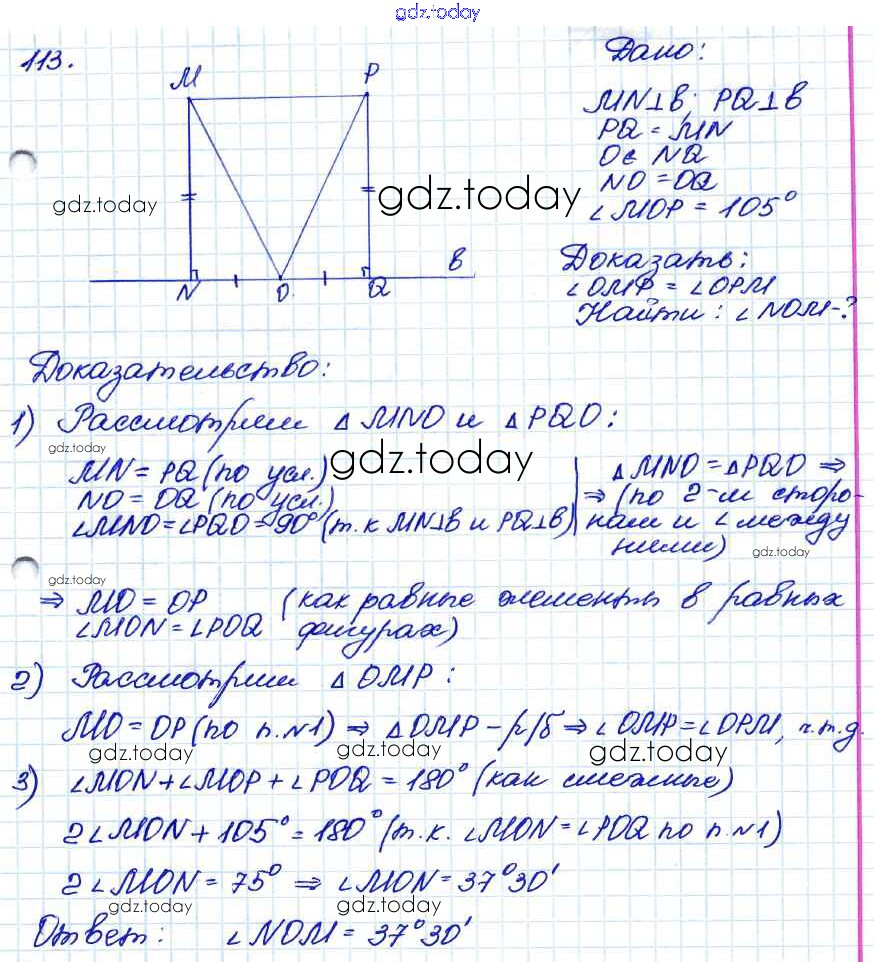 gdz.today
113.
M P
N O Q в
Дано:
MN⊥в; PQ⊥в
PQ = MN
O∈ NQ
NO = OQ
∠MOP = 105°
Доказать:
∠OMP = ∠OPM
Найти: ∠NOM-?
gdz.today
gdz.today
Доказательство:
1) Рассмотрим △ MNO и △ PQO:
gdz.today
MN = PQ (по усл.)
NO = OQ (по усл.)
∠MNO = ∠PQO = 90° (т.к MN⊥в и PQ⊥в)
gdz.today
△ MNO = △ PQO ⇒
⇒ (по 2-м сторо-
нам и ∠ между
ними)
gdz.today
gdz.today
⇒ MO = OP (как равные элементы в равных
∠MON = ∠POQ фигурах)
2) Рассмотрим △ OMP:
MO = OP (по п.N1) ⇒ △ OMP – р/б ⇒ ∠OMP = ∠OPM, ч.т.д.
gdz.today gdz.today gdz.today
3) ∠MON + ∠MOP + ∠POQ = 180° (как смежные)
2∠MON + 105° = 180° (т.к. ∠MON = ∠POQ по п.N1)
2∠MON = 75° ⇒ ∠MON = 37°30'
gdz.today gdz.today
Ответ: ∠NOM = 37°30'